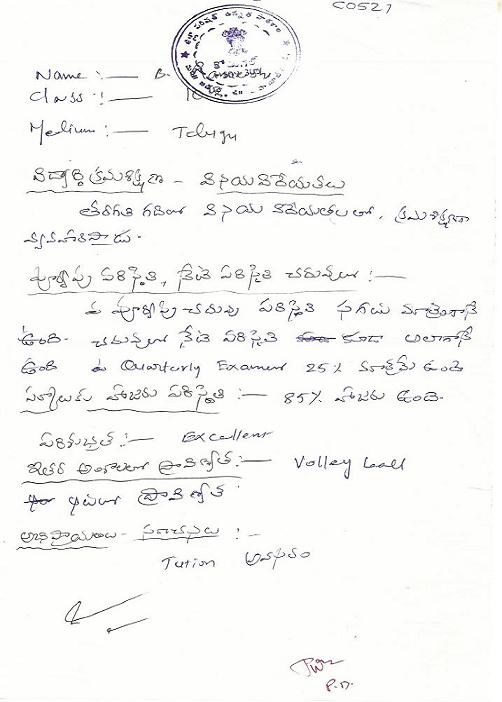 C0527
Name :— B.
Class :— 10
Medium :— Telugu
విద్యార్థి క్రమశిక్షణ - వినయవిధేయతలు
తరగతి గదిలో వినయ విధేయతలతో, క్రమశిక్షణగా
వ్యవహరిస్తాడు.
పూర్వపు పరిస్థితి, నేటి పరిస్థితి చదువులో :—
ఈ పూర్వపు చదువు పరిస్థితి సగటు మాత్రంగానే
ఉంది. చదువులో నేటి పరిస్థితి కూడా అలాగానే
ఉంది ఈ Quarterly Examen 25% మాత్రమే ఉంది
హాజరు పరిస్థితి :— 85% హాజరు ఉంది.
పరిశుభ్రత :— Excellent
ఇతర అంశాలలో ప్రావీణ్యత :— Volley ball
ఆటలో ప్రావీణ్యత
అభిప్రాయాలు - సూచనలు :-
Tution అవసరం